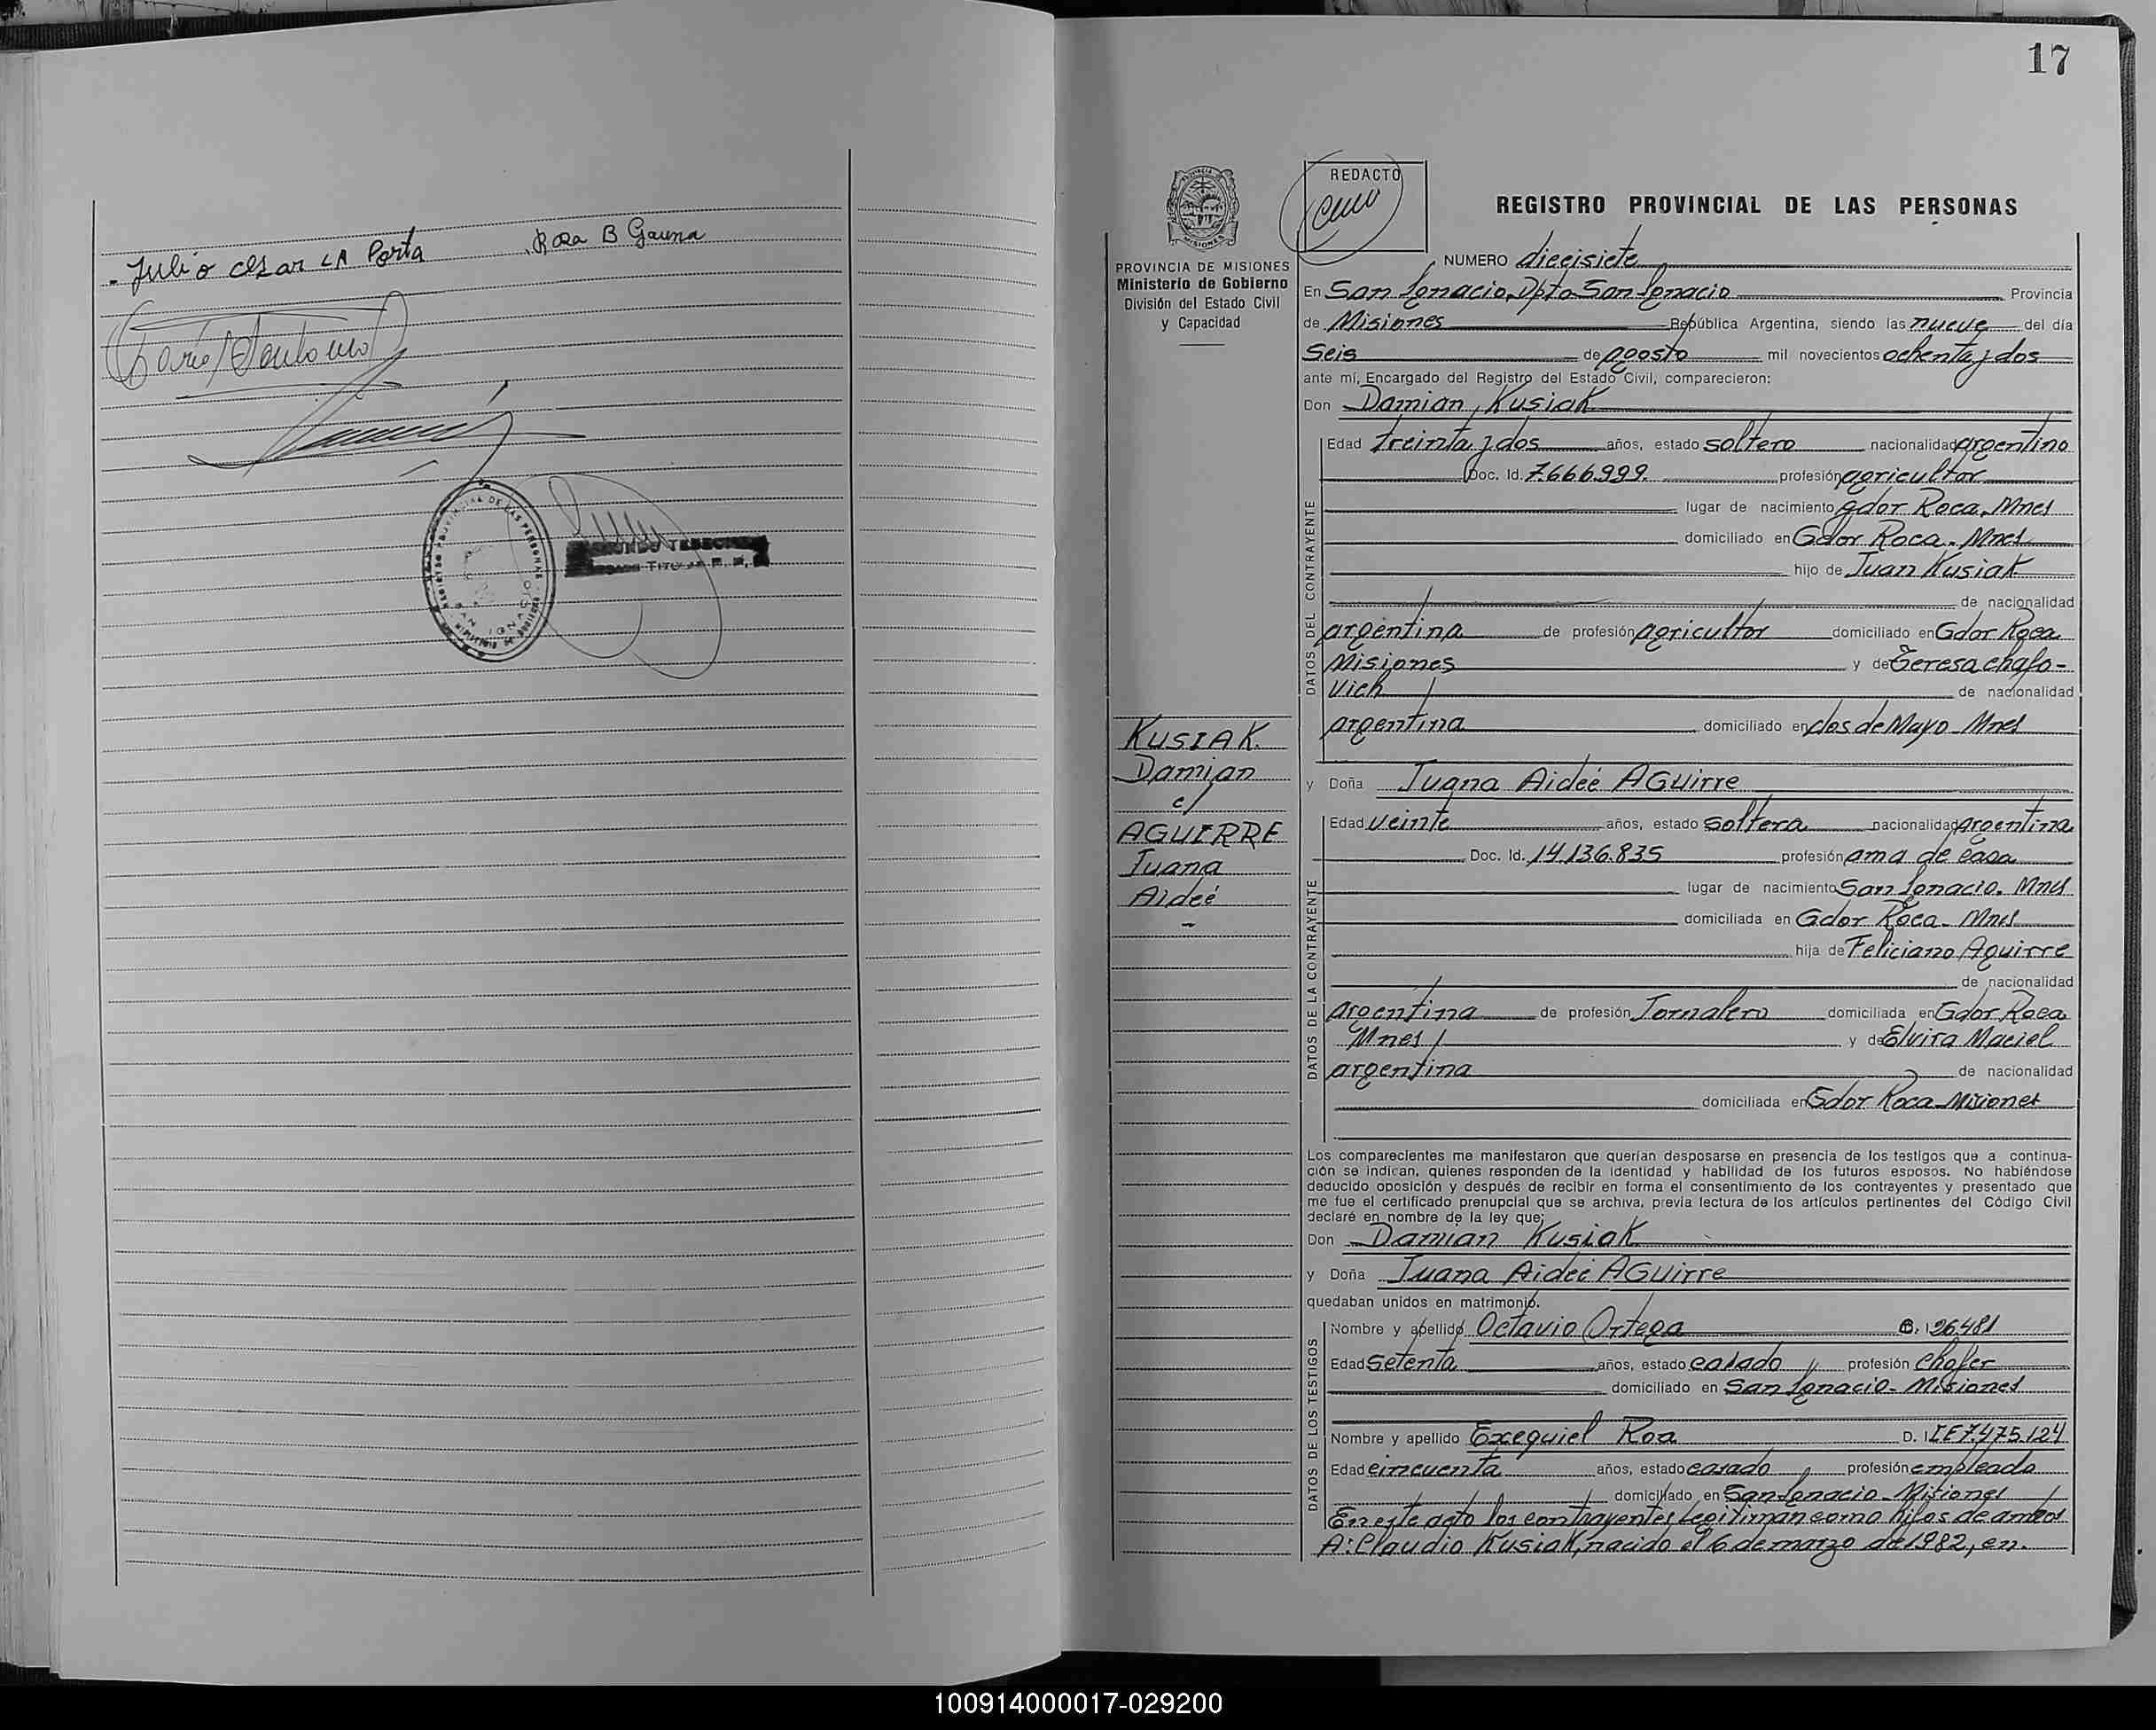 - Julio cesar LA Porta Rosa B Gauna
REGISTRO PROVINCIAL DE LAS PERSONAS
17
PROVINCIA DE MISIONES
Ministerio de Gobierno
División del Estado Civil
y Capacidad
KUSIAK
Damian
c/
AGUIRRE
Juana
Aideé
-
MISIONES
REDACTO
REGISTRO PROVINCIAL DE LAS PERSONAS
NUMERO diecisiete
En San Ignacio, Dpto San Ignacio Provincia
de Misiones República Argentina, siendo las nueve del día
Seis de agosto mil novecientos ochenta y dos
ante mí, Encargado del Registro del Estado Civil, comparecieron:
Don Damian Kusiak
DATOS DEL CONTRAYENTE
Edad treinta y dos años, estado soltero nacionalidad argentino
Doc. Id. 7.666.999. profesión agricultor
lugar de nacimiento Gdor Roca, Mnes
domiciliado en Gdor Roca. Mnes
hijo de Juan Kusiak
de nacionalidad
argentina de profesión agricultor domiciliado en Gdor Roca
Misiones y de Teresa chafo-
vich de nacionalidad
argentina domiciliado en dos de Mayo Mnes
y Doña Juana Aideé AGUirre
DATOS DE LA CONTRAYENTE
Edad veinte años, estado soltera nacionalidad argentina
Doc. Id. 14.136.835 profesión ama de casa
lugar de nacimiento San Ignacio. Mnes
domiciliada en Gdor Roca. Mnes
hija de Feliciano Aguirre
de nacionalidad
argentina de profesión Jornalero domiciliada en Gdor. Roca
Mnes y de Elvira Maciel
argentina de nacionalidad
domiciliada en Gdor Roca Misiones
Los comparecientes me manifestaron que querían desposarse en presencia de los testigos que a continua-
ción se indican, quienes responden de la identidad y habilidad de los futuros esposos. No habiéndose
deducido oposición y después de recibir en forma el consentimiento de los contrayentes y presentado que
me fue el certificado prenupcial que se archiva, previa lectura de los artículos pertinentes del Código Civil
declaré en nombre de la ley que:
Don Damian Kusiak
y Doña Juana Aideé AGUirre
quedaban unidos en matrimonio.
DATOS DE LOS TESTIGOS
Nombre y apellido Octavio Ortega 26.481
Edad setenta años, estado casado profesión chofer
domiciliado en San Ignacio- Misiones
Nombre y apellido Exequiel Roa D. I. 7.475.124
Edad cincuenta años, estado casado profesión empleado
domiciliado en San Ignacio- Misiones
En este acto los contrayentes legitiman como hijos de ambos
A: Claudio Kusiak, nacido el 6 de marzo de 1982, en.
100914000017-029200